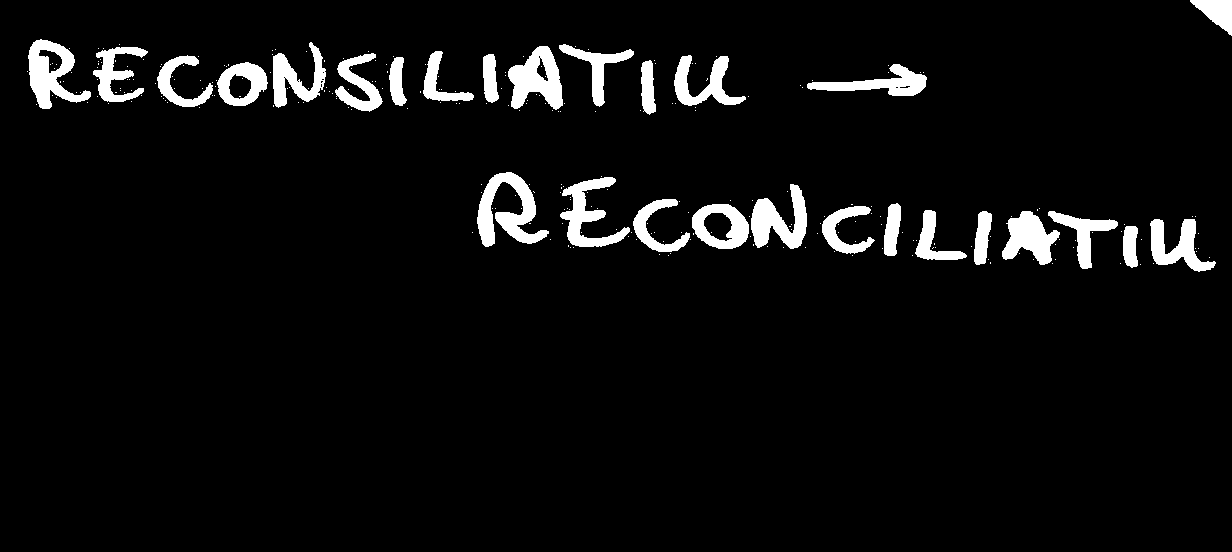 RECONSILIATIU →
RECONCILIATIU